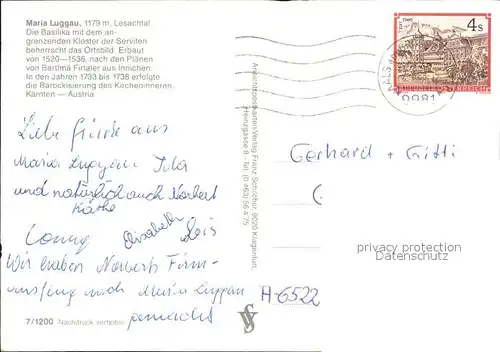 Maria Luggau, 1179 m, Lesachtal
Die Basilika mit dem an-
grenzenden Kloster der Serviten
beherrscht das Ortsbild. Erbaut
von 1520—1536, nach den Plänen
von Bartlmä Firtaler aus Innichen.
In den Jahren 1733 bis 1738 erfolgte
die Barockisierung des Kircheninneren.
Kärnten — Austria
Liebe Grüsse aus
Maria Luggau
und natürlich auch Norbert
Käthe
Conny Elisabeth Lois
Wir haben Norberts Firm-
ausflug nach Maria Luggau
gemacht
7/1200 Nachdruck verboten
Ansichtskarten-Verlag Franz Schilcher, 9020 Klagenfurt,
Heinzgasse 8 - Tel. (0 463) 56 4 75
4s
9981
Gerhard + Gitti
privacy protection
Datenschutz
A-6522